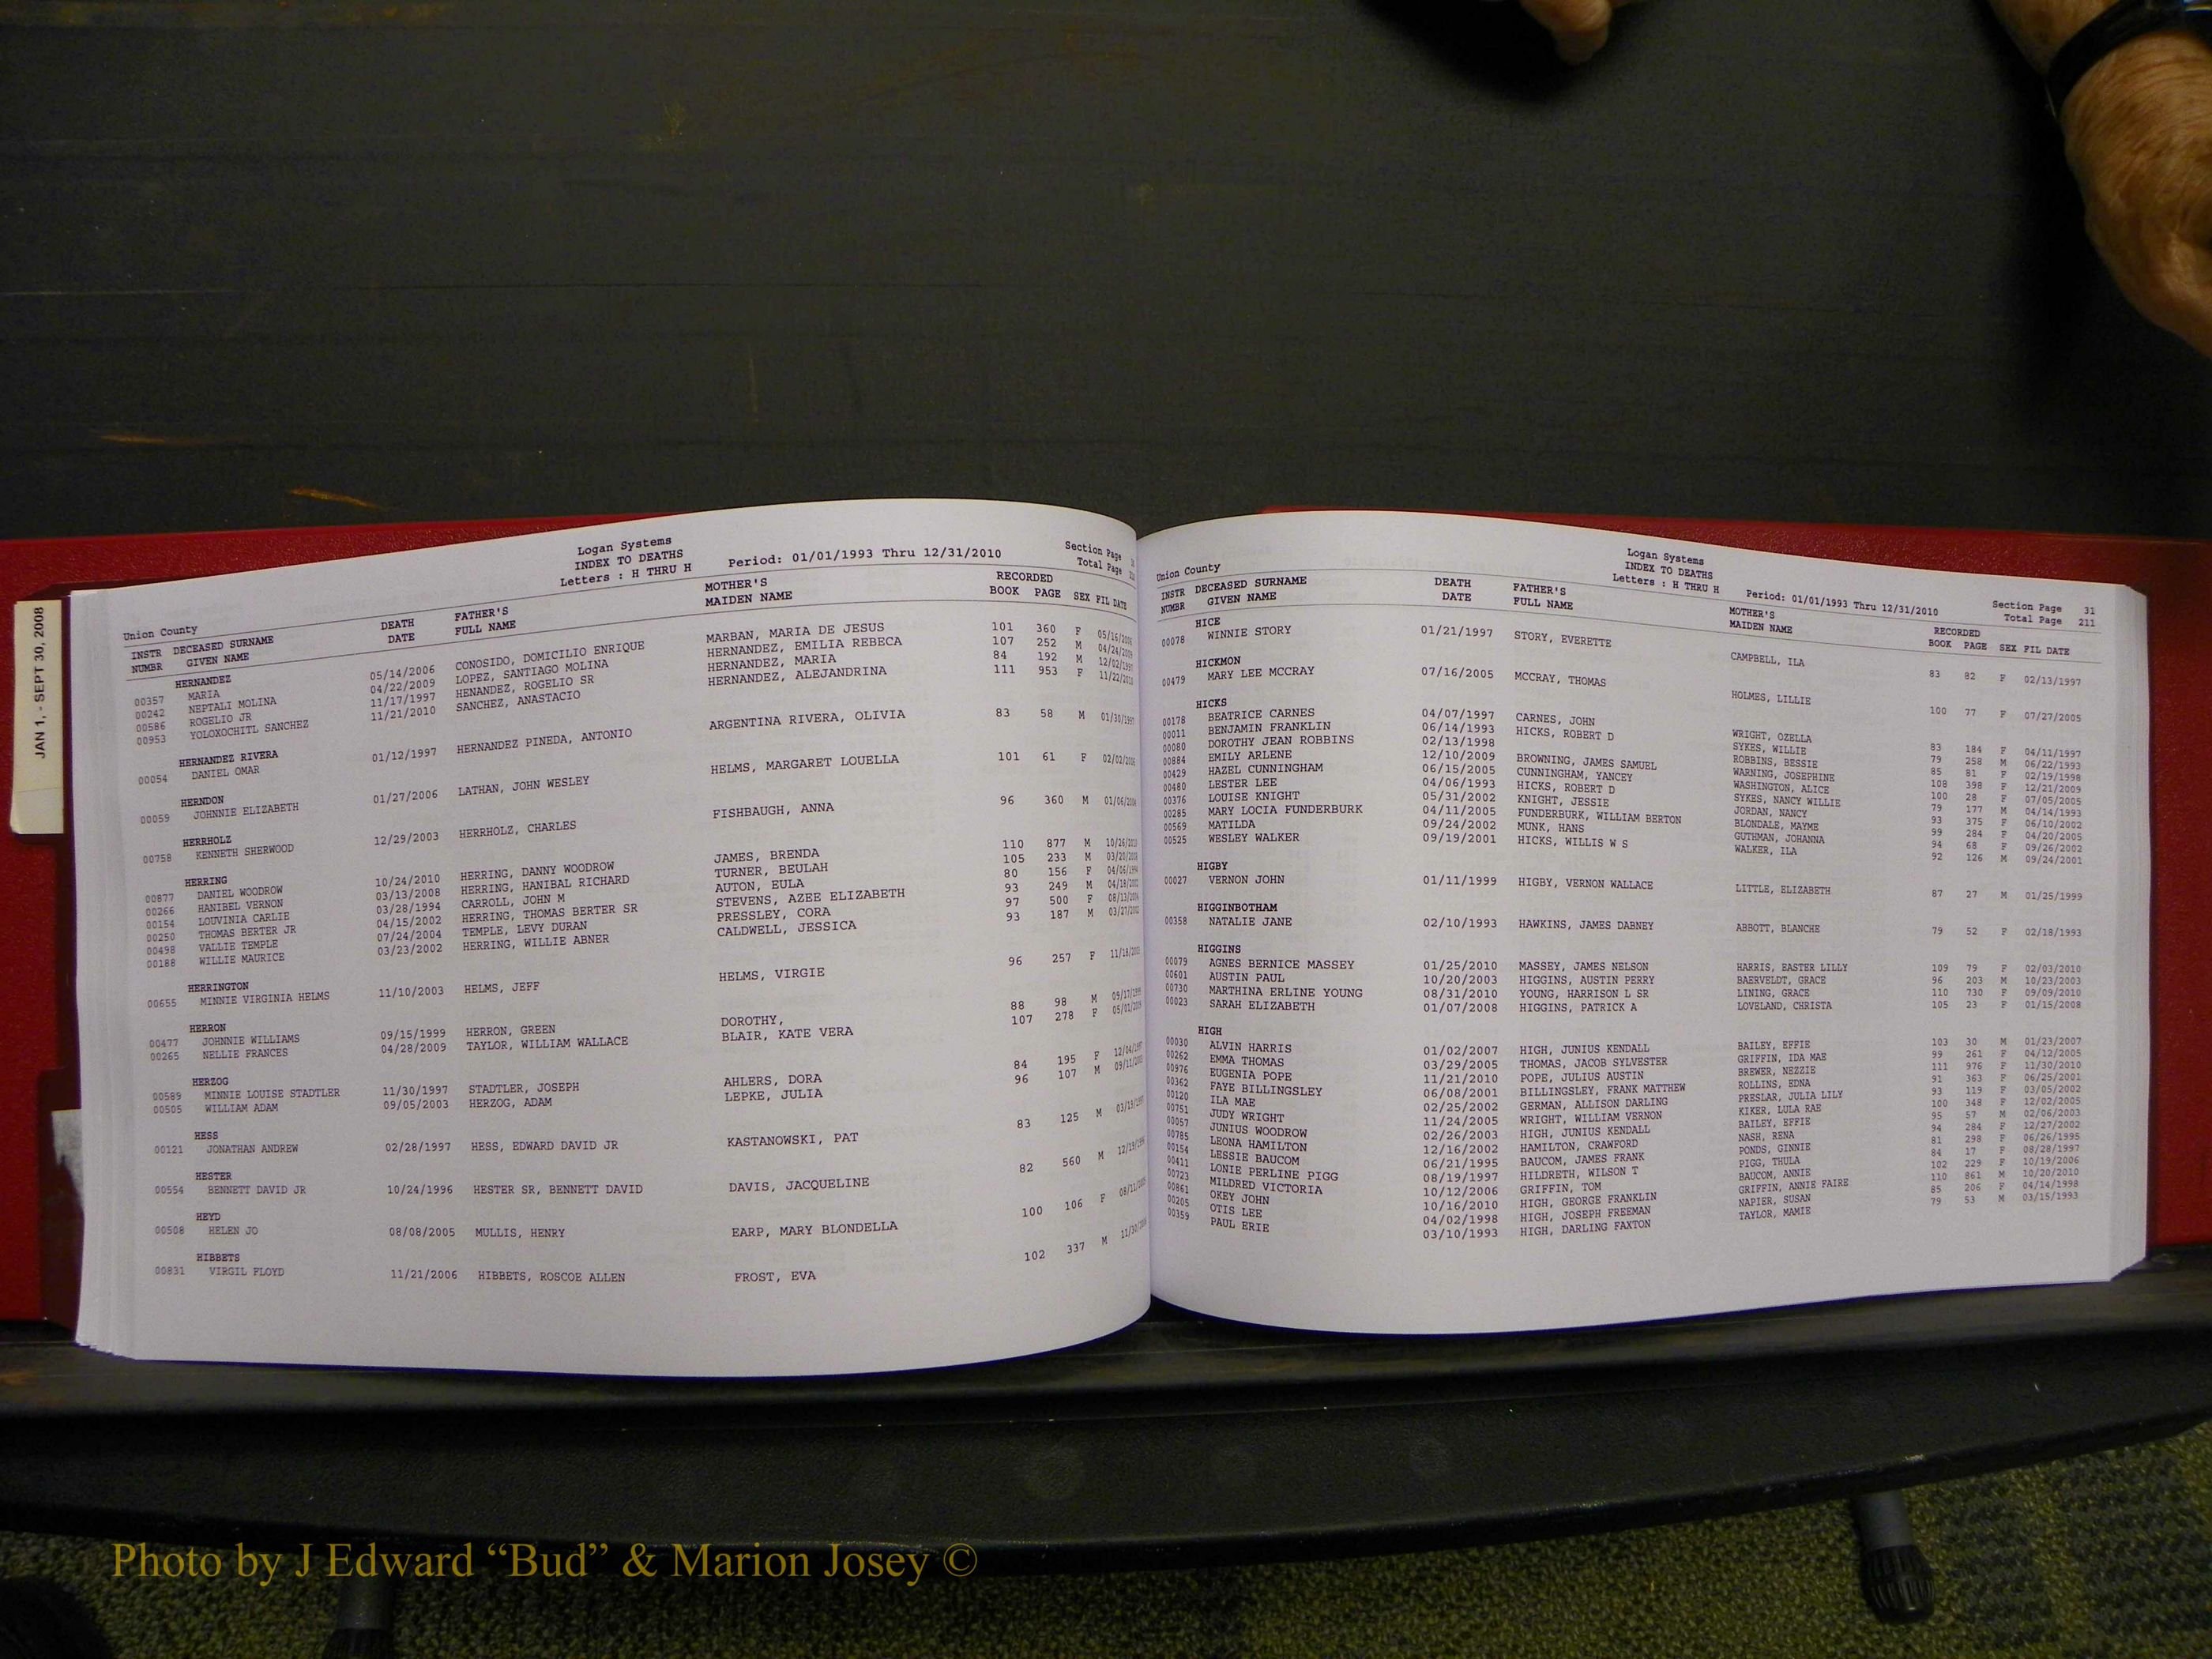 JAN 1, - SEPT 30, 2008
Logan Systems
INDEX TO DEATHS
Union County Letters : H THRU H Period: 01/01/1993 Thru 12/31/2010 Section Page
Total Page
INSTR DECEASED SURNAME DEATH FATHER'S MOTHER'S RECORDED
NUMBR GIVEN NAME DATE FULL NAME MAIDEN NAME BOOK PAGE SEX FIL DATE
HERNANDEZ
00357 MARIA 05/14/2006 CONOSIDO, DOMICILIO ENRIQUE MARBAN, MARIA DE JESUS 101 360 F 05/16/2006
00242 NEPTALI MOLINA 04/22/2009 LOPEZ, SANTIAGO MOLINA HERNANDEZ, EMILIA REBECA 107 252 M 04/24/2009
00586 ROGELIO JR 11/17/1997 HENANDEZ, ROGELIO SR HERNANDEZ, MARIA 84 192 M 12/02/1997
00953 YOLOXOCHITL SANCHEZ 11/21/2010 SANCHEZ, ANASTACIO HERNANDEZ, ALEJANDRINA 111 953 F 11/22/2010
HERNANDEZ RIVERA
00054 DANIEL OMAR 01/12/1997 HERNANDEZ PINEDA, ANTONIO ARGENTINA RIVERA, OLIVIA 83 58 M 01/30/1997
HERNDON
00059 JOHNNIE ELIZABETH 01/27/2006 LATHAN, JOHN WESLEY HELMS, MARGARET LOUELLA 101 61 F 02/02/2006
HERRHOLZ
00758 KENNETH SHERWOOD 12/29/2003 HERRHOLZ, CHARLES FISHBAUGH, ANNA 96 360 M 01/06/2004
HERRING
00877 DANIEL WOODROW 10/24/2010 HERRING, DANNY WOODROW JAMES, BRENDA 110 877 M 10/26/2010
00266 HANIBEL VERNON 03/13/2008 HERRING, HANIBAL RICHARD TURNER, BEULAH 105 233 M 03/20/2008
00154 LOUVINIA CARLIE 03/28/1994 CARROLL, JOHN M AUTON, EULA 80 156 F 04/06/1994
00250 THOMAS BERTER JR 04/15/2002 HERRING, THOMAS BERTER SR STEVENS, AZEE ELIZABETH 93 249 M 04/18/2002
00498 VALLIE TEMPLE 07/24/2004 TEMPLE, LEVY DURAN PRESSLEY, CORA 97 500 F 08/13/2004
00188 WILLIE MAURICE 03/23/2002 HERRING, WILLIE ABNER CALDWELL, JESSICA 93 187 M 03/27/2002
HERRINGTON
00655 MINNIE VIRGINIA HELMS 11/10/2003 HELMS, JEFF HELMS, VIRGIE 96 257 F 11/18/2003
HERRON
00477 JOHNNIE WILLIAMS 09/15/1999 HERRON, GREEN DOROTHY, 88 98 M 09/17/1999
00265 NELLIE FRANCES 04/28/2009 TAYLOR, WILLIAM WALLACE BLAIR, KATE VERA 107 278 F 05/01/2009
HERZOG
00589 MINNIE LOUISE STADTLER 11/30/1997 STADTLER, JOSEPH AHLERS, DORA 84 195 F 12/04/1997
00505 WILLIAM ADAM 09/05/2003 HERZOG, ADAM LEPKE, JULIA 96 107 M 09/11/2003
HESS
00121 JONATHAN ANDREW 02/28/1997 HESS, EDWARD DAVID JR KASTANOWSKI, PAT 83 125 M
HESTER
00554 BENNETT DAVID JR 10/24/1996 HESTER SR, BENNETT DAVID DAVIS, JACQUELINE 82 560 M
HEYD
00508 HELEN JO 08/08/2005 MULLIS, HENRY EARP, MARY BLONDELLA 100 106 F
HIBBETS
00831 VIRGIL FLOYD 11/21/2006 HIBBETS, ROSCOE ALLEN FROST, EVA 102 337 M
Logan Systems
INDEX TO DEATHS
Union County Letters : H THRU H Period: 01/01/1993 Thru 12/31/2010 Section Page 31
Total Page 211
INSTR DECEASED SURNAME DEATH FATHER'S MOTHER'S RECORDED
NUMBR GIVEN NAME DATE FULL NAME MAIDEN NAME BOOK PAGE SEX FIL DATE
HICE
00078 WINNIE STORY 01/21/1997 STORY, EVERETTE CAMPBELL, ILA 83 82 F 02/13/1997
HICKMON
00479 MARY LEE MCCRAY 07/16/2005 MCCRAY, THOMAS HOLMES, LILLIE 100 77 F 07/27/2005
HICKS
00178 BEATRICE CARNES 04/07/1997 CARNES, JOHN WRIGHT, OZELLA 83 184 F 04/11/1997
00011 BENJAMIN FRANKLIN 06/14/1993 HICKS, ROBERT D SYKES, WILLIE 79 258 M 06/22/1993
00080 DOROTHY JEAN ROBBINS 02/13/1998 ROBBINS, BESSIE 85 81 F 02/19/1998
00884 EMILY ARLENE 12/10/2009 BROWNING, JAMES SAMUEL WARNING, JOSEPHINE 108 398 F 12/21/2009
00429 HAZEL CUNNINGHAM 06/15/2005 CUNNINGHAM, YANCEY WASHINGTON, ALICE 100 28 F 07/05/2005
00480 LESTER LEE 04/06/1993 HICKS, ROBERT D SYKES, NANCY WILLIE 79 177 M 04/14/1993
00376 LOUISE KNIGHT 05/31/2002 KNIGHT, JESSIE JORDAN, NANCY 93 375 F 06/10/2002
00285 MARY LOCIA FUNDERBURK 04/11/2005 FUNDERBURK, WILLIAM BERTON BLONDALE, MAYME 99 284 F 04/20/2005
00569 MATILDA 09/24/2002 MUNK, HANS GUTHMAN, JOHANNA 94 68 F 09/26/2002
00525 WESLEY WALKER 09/19/2001 HICKS, WILLIS W S WALKER, ILA 92 126 M 09/24/2001
HIGBY
00027 VERNON JOHN 01/11/1999 HIGBY, VERNON WALLACE LITTLE, ELIZABETH 87 27 M 01/25/1999
HIGGINBOTHAM
00358 NATALIE JANE 02/10/1993 HAWKINS, JAMES DABNEY ABBOTT, BLANCHE 79 52 F 02/18/1993
HIGGINS
00079 AGNES BERNICE MASSEY 01/25/2010 MASSEY, JAMES NELSON HARRIS, EASTER LILLY 109 79 F 02/03/2010
00601 AUSTIN PAUL 10/20/2003 HIGGINS, AUSTIN PERRY BAERVELDT, GRACE 96 203 M 10/23/2003
00730 MARTHINA ERLINE YOUNG 08/31/2010 YOUNG, HARRISON L SR LINING, GRACE 110 730 F 09/09/2010
00023 SARAH ELIZABETH 01/07/2008 HIGGINS, PATRICK A LOVELAND, CHRISTA 105 23 F 01/15/2008
HIGH
00030 ALVIN HARRIS 01/02/2007 HIGH, JUNIUS KENDALL BAILEY, EFFIE 103 30 M 01/23/2007
00262 EMMA THOMAS 03/29/2005 THOMAS, JACOB SYLVESTER GRIFFIN, IDA MAE 99 261 F 04/12/2005
00976 EUGENIA POPE 11/21/2010 POPE, JULIUS AUSTIN BREWER, NEZZIE 111 976 F 11/30/2010
00362 FAYE BILLINGSLEY 06/08/2001 BILLINGSLEY, FRANK MATTHEW ROLLINS, EDNA 91 363 F 06/25/2001
00120 ILA MAE 02/25/2002 GERMAN, ALLISON DARLING PRESLAR, JULIA LILY 93 119 F 03/05/2002
00751 JUDY WRIGHT 11/24/2005 WRIGHT, WILLIAM VERNON KIKER, LULA RAE 100 348 F 12/02/2005
00057 JUNIUS WOODROW 02/26/2003 HIGH, JUNIUS KENDALL BAILEY, EFFIE 95 57 M 02/06/2003
00785 LEONA HAMILTON 12/16/2002 HAMILTON, CRAWFORD NASH, RENA 94 284 F 12/27/2002
00154 LESSIE BAUCOM 06/21/1995 BAUCOM, JAMES FRANK PONDS, GINNIE 81 298 F 06/26/1995
00411 LONIE PERLINE PIGG 08/19/1997 HILDRETH, WILSON T PIGG, THULA 84 17 F 08/28/1997
00723 MILDRED VICTORIA 10/12/2006 GRIFFIN, TOM BAUCOM, ANNIE 102 229 F 10/19/2006
00861 OKEY JOHN 10/16/2010 HIGH, GEORGE FRANKLIN GRIFFIN, ANNIE FAIRE 110 861 M 10/20/2010
00205 OTIS LEE 04/02/1998 HIGH, JOSEPH FREEMAN NAPIER, SUSAN 85 206 F 04/14/1998
00359 PAUL ERIE 03/10/1993 HIGH, DARLING FAXTON TAYLOR, MAMIE 79 53 M 03/15/1993
Photo by J Edward “Bud” & Marion Josey ©